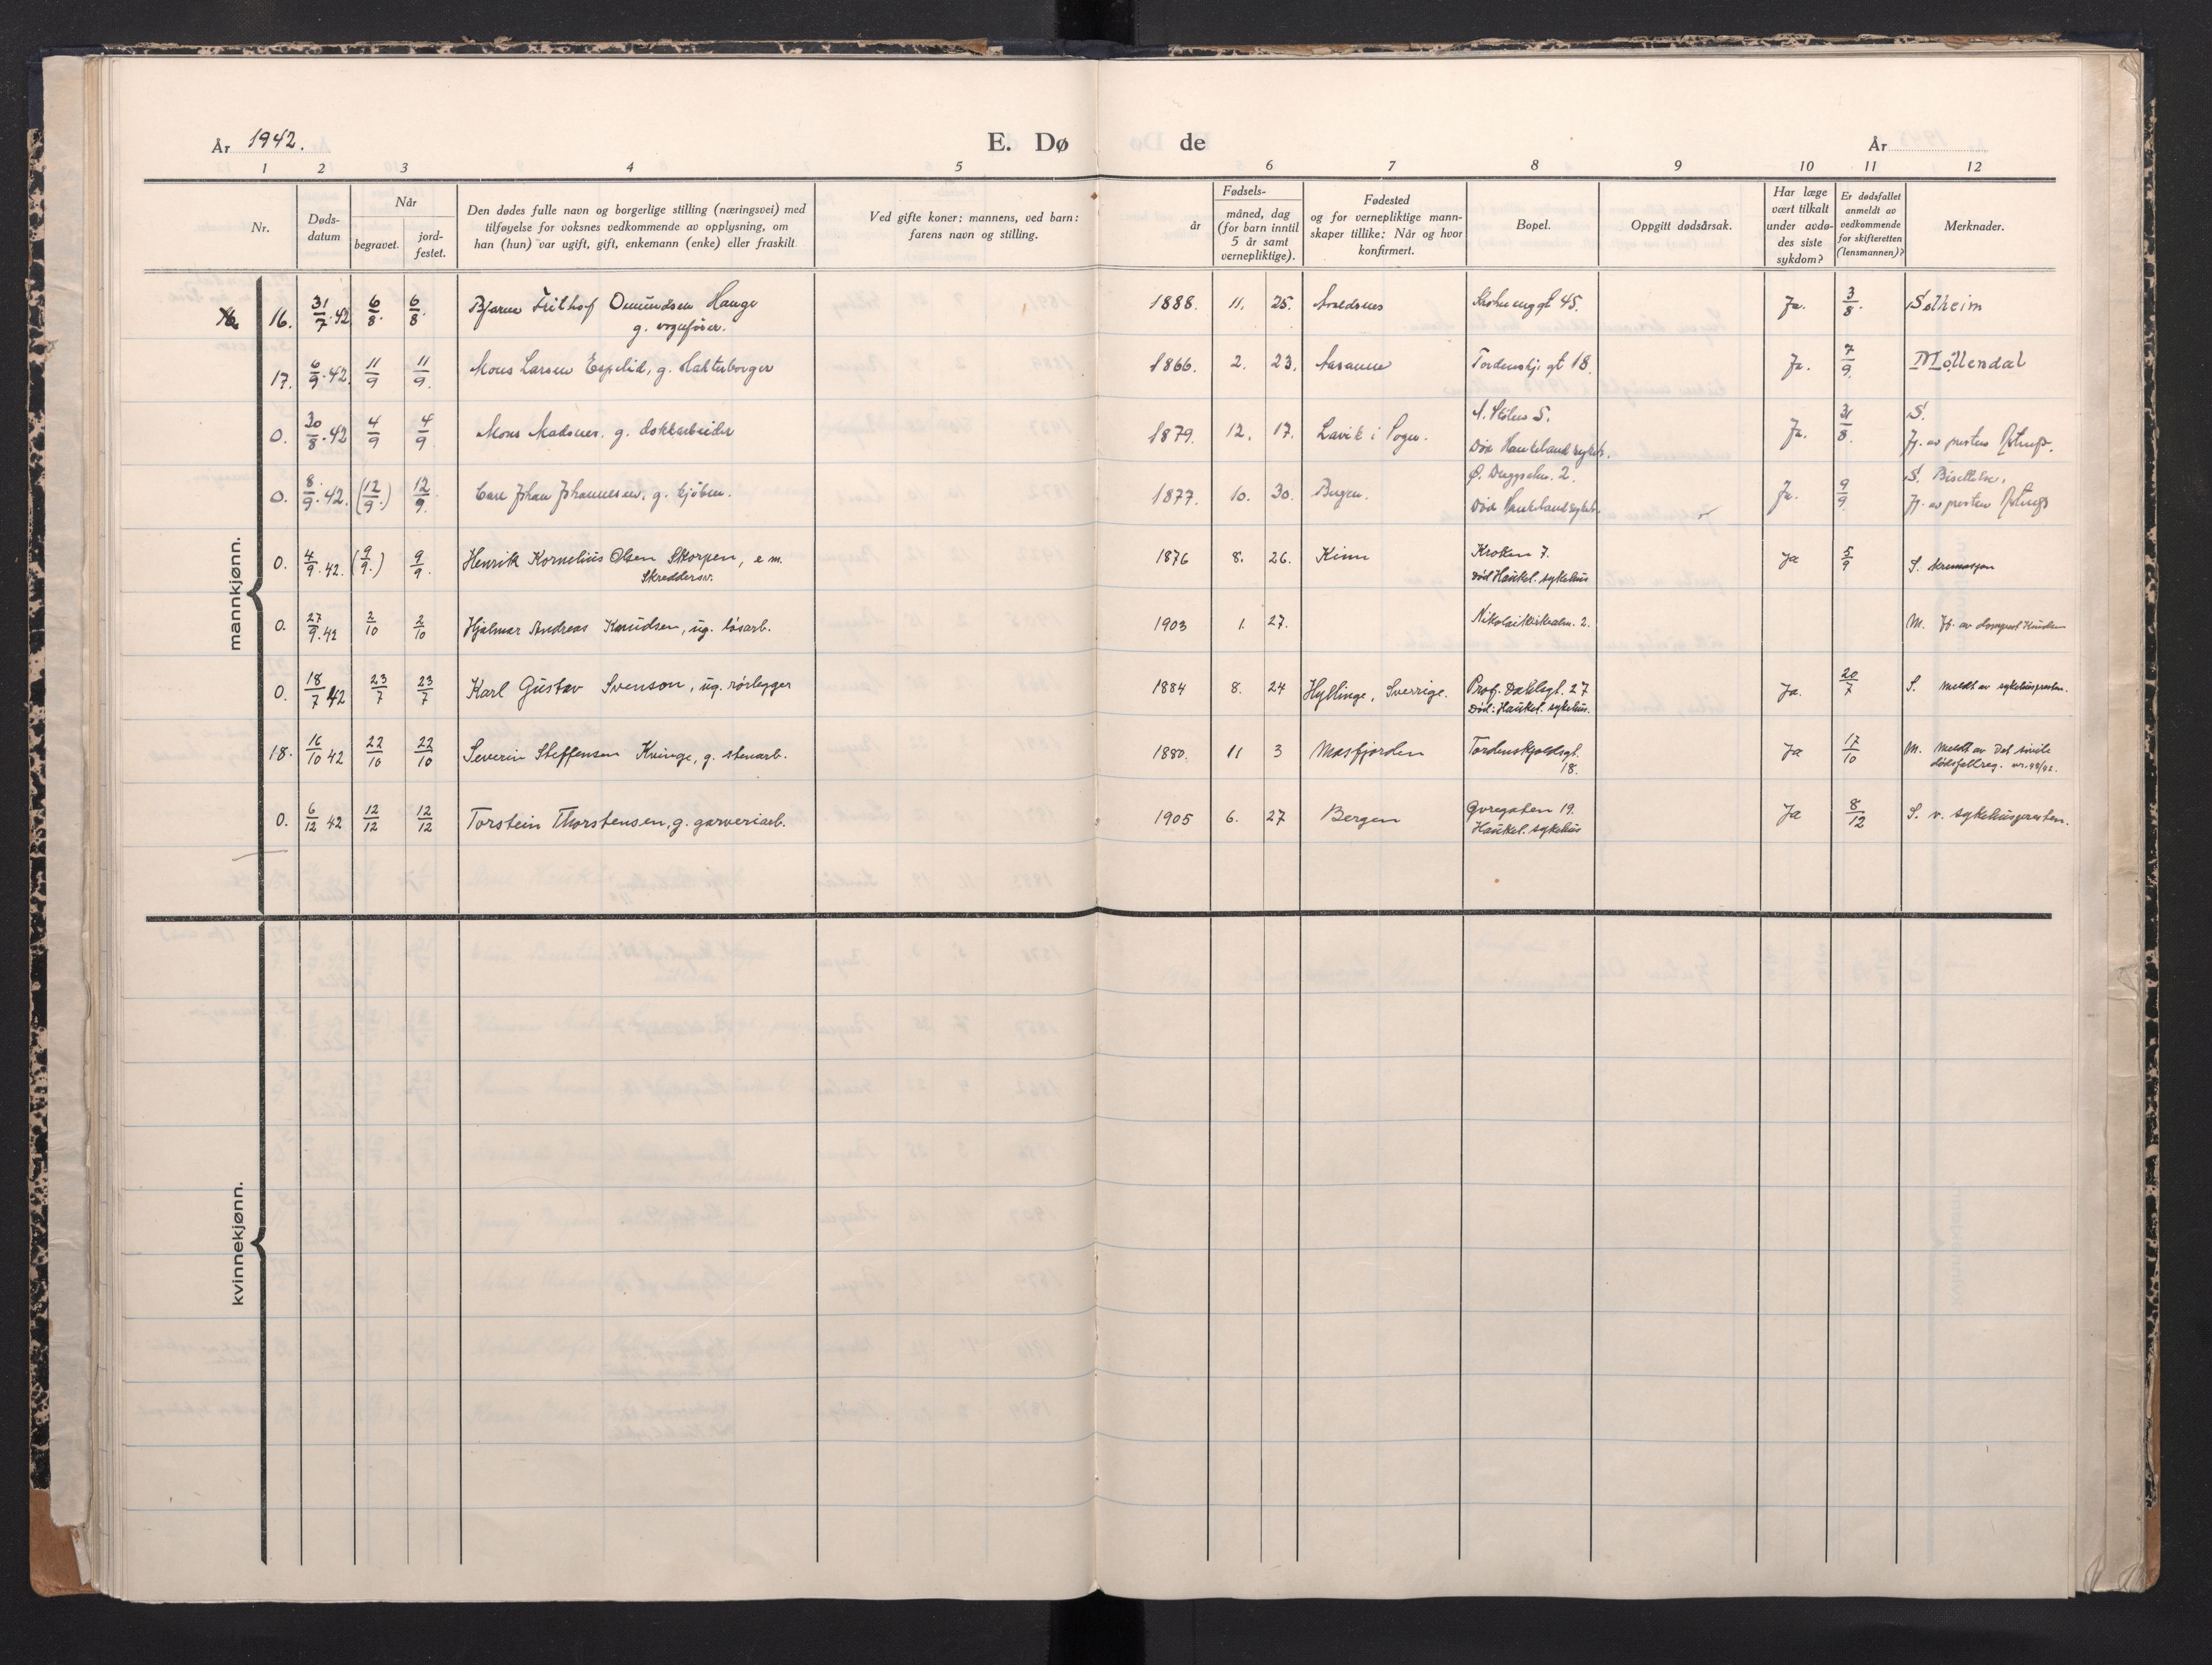 År 1942.
E. Dø de
År
1 2 3 4 5 6 7 8 9 10 11 12
Nr.
Døds-
datum
Når
begravet.
jord-
festet.
Den dødes fulle navn og borgerlige stilling (næringsvei) med
tilføyelse for voksnes vedkommende av opplysning, om
han (hun) var ugift, gift, enkemann (enke) eller fraskilt.
Ved gifte koner: mannens, ved barn:
farens navn og stilling.
Fødsels-
år
måned, dag
(for barn inntil
5 år samt
vernepliktige).
Fødested
og for vernepliktige mann-
skaper tillike: Når og hvor
konfirmert.
Bopel.
Oppgitt dødsårsak.
Har læge
vært tilkalt
under avdø-
des siste
sykdom?
Er dødsfallet
anmeldt av
vedkommende
for skifteretten
(lensmannen)?
Merknader.
mannkjønn.
16. 31/7.42 6/8. 6/8. Bjarne Frithof Omundsen Hauge 1888. 11. 25. Avaldsnes 45. Ja. 3/8. Solheim
g. vognfører.
17. 6/9.42. 11/9 11/9. Mons Larsen Espelid, g. 1866. 2. 23. Tordenskj. gt 18. Ja. 7/9. Møllendal
0. 30/8.42 4/9 4/9 Mons Madsnes. g. dokkarbeider 1879. 12. 17. Lavik i Sogn. Ja. 31/8. S.
Død Haukeland sykeh. Jf. av presten Astrup.
0. 8/9.42. (12/9.) 12/9. Carl Johan Johannesen, g. 1877. 10. 30. Bergen. 2. Ja. 9/9. S. Bisettelse.
Død Haukeland sykeh. Jf. av presten Astrup
0. 4/9.42. (9/9.) 9/9. Henrik Kornelius Olsen Skorpen, e.m. 1876 8. 26. Kinn Kroken 7. Ja 5/9 S. kremasjon
Skreddersv. Død Haukel. sykehus
0. 27/9.42 2/10 2/10 Hjalmar Andreas Knudsen, ug. løsarb. 1903 1. 27. Nikolaikirkealm. 2. M. Jf. av
0. 18/7 42 23/7 23/7 Karl Gustav Svenson, ug. rørlegger 1884 8. 24 Hyllinge, Sverrige. Prof. Dahlsgt. 27 Ja. 20/7 S. Meldt av sykehuspresten.
Død: Haukel. sykehus.
18. 16/10 42 22/10 22/10 Severin Steffensen Kvinge, g. stenarb. 1880. 11 3 Masfjorden Tordenskjoldsgt. Ja 17/10 M. Meldt av Det sivile
18. dødsfallreg.
0. 6/12 42 12/12 12/12 Torstein Thorstensen, g. garveriarb. 1905 6. 27 Bergen Øvregaten 19. Ja 8/12 S. v. sykehuspresten.
Haukel. sykehus
kvinnekjønn.